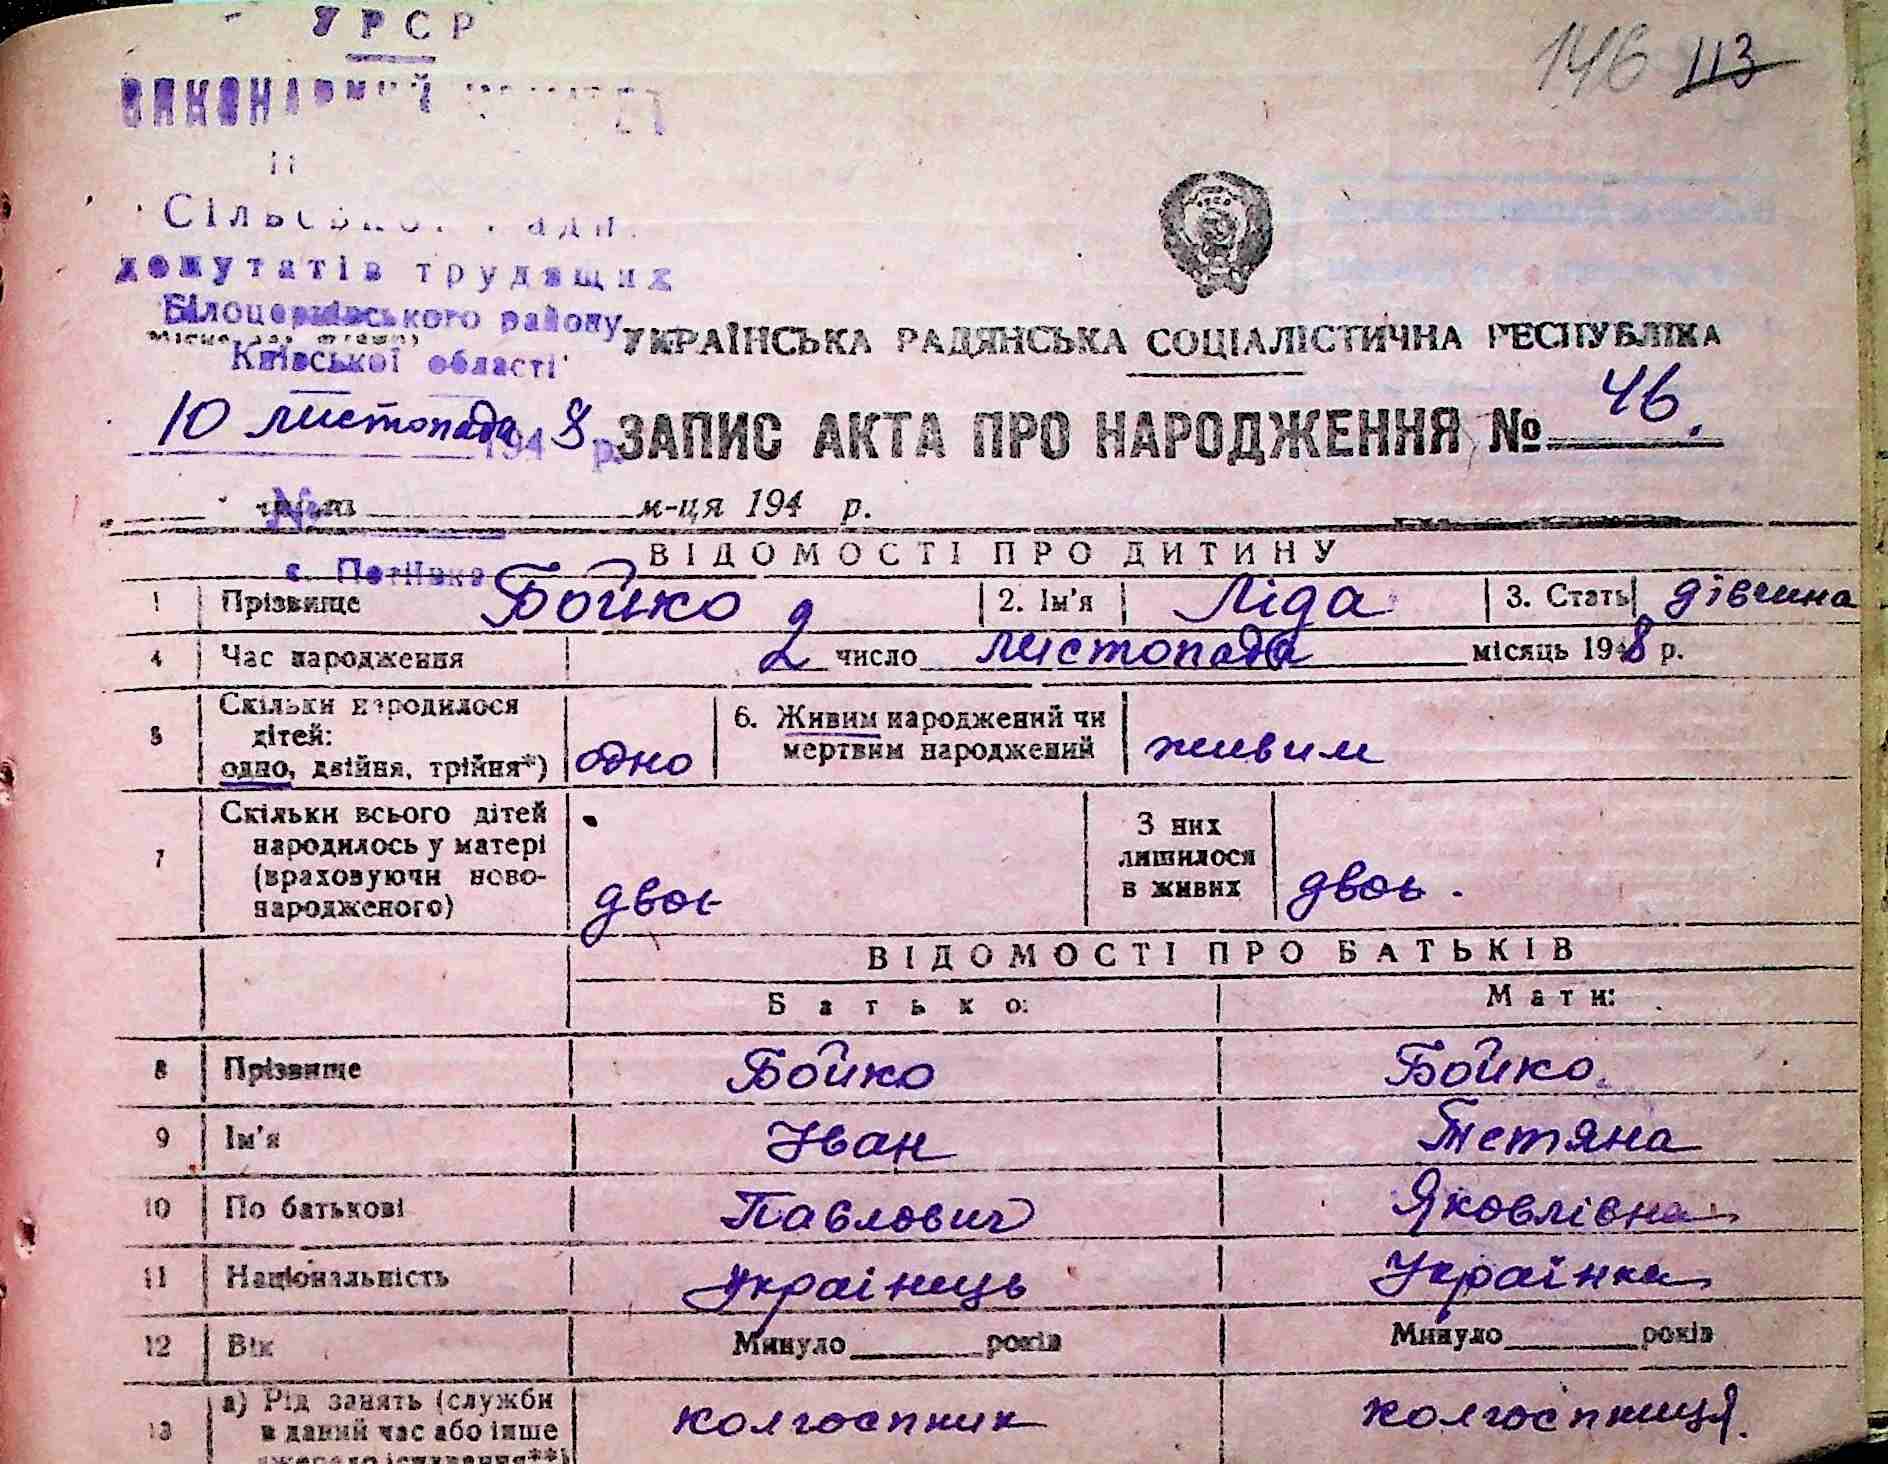 146 113
УРСР
Сільської Ради
депутатів трудящих
Білоцерківського району
Київської області
УКРАЇНСЬКА РАДЯНСЬКА СОЦІАЛІСТИЧНА РЕСПУБЛІКА
10 листопада 1948 р.
ЗАПИС АКТА ПРО НАРОДЖЕННЯ № 46.
№
м-ця 194 р.
ВІДОМОСТІ ПРО ДИТИНУ
с. Потіївка
1 Прізвище Бойко 2. Ім'я Ліда 3. Стать дівчина
4 Час народження 2 число листопада місяць 1948 р.
5 Скільки народилося дітей: одно, двійня, трійня*) одно 6. Живим народжений чи мертвим народжений живим
7 Скільки всього дітей народилось у матері (враховуючи новонародженого) двоє З них лишилося в живих двоє.
ВІДОМОСТІ ПРО БАТЬКІВ
Батько: Мати:
8 Прізвище Бойко Бойко.
9 Ім'я Іван Тетяна
10 По батькові Павлович Яковлівна
11 Національність Українець Українка
12 Вік Минуло років Минуло років
13 а) Рід занять (служби в даний час або інше джерело існування**) колгоспник колгоспниця.